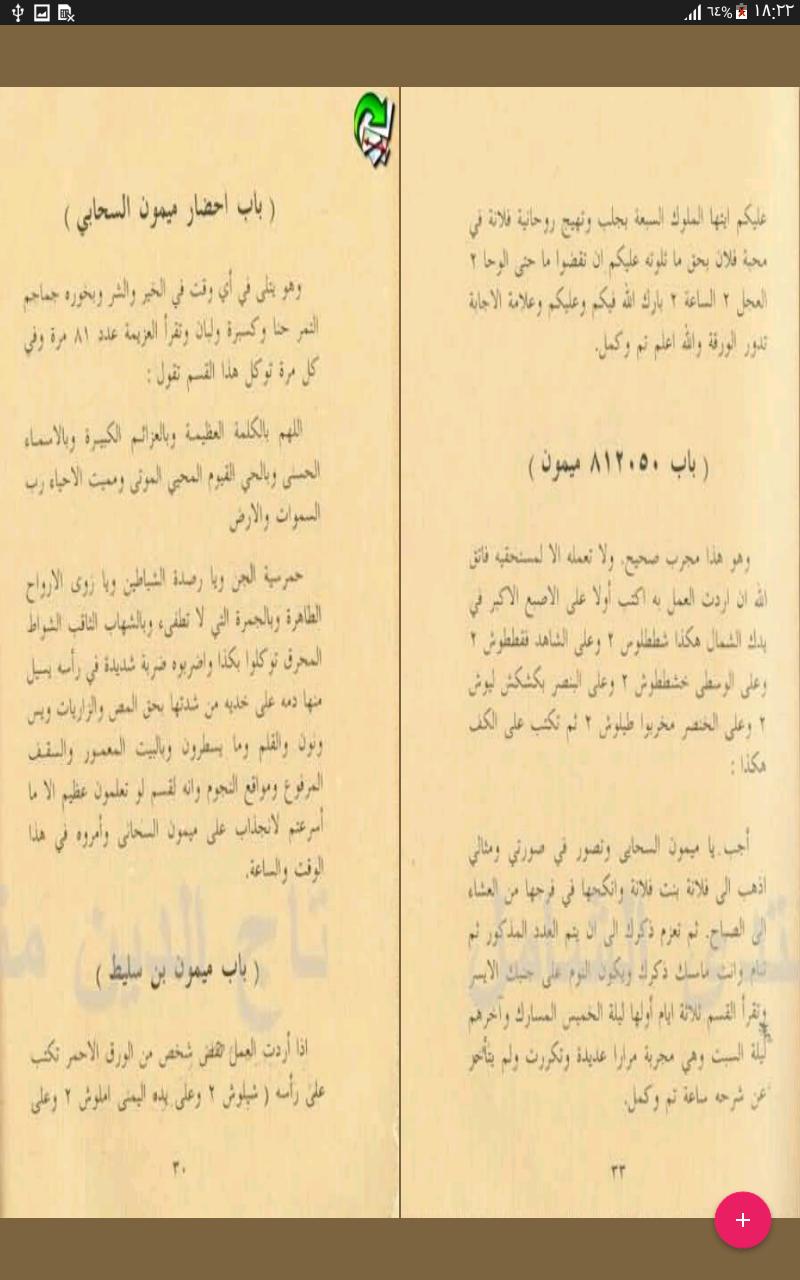 ٦٤% ١٨:٢٢
عليكم ايتها الملوك السبعة بجلب وتهيج روحانية فلانة في
محبة فلان بحق ما تلوته عليكم ان تقضوا ما حتى الوحا ٢
العجل ٢ الساعة ٢ بارك الله فيكم وعليكم وعلامة الاجابة
تدور الورقة والله اعلم تم وكمل.
( باب ٨١٢٠٥٠ ميمون )
وهو هذا مجرب صحيح. ولا تعمله الا لمستحقيه فاتق
الله ان اردت العمل به اكتب أولا على الاصبع الاكبر في
يدك الشمال هكذا شططلوس ٢ وعلى الشاهد فقططوش ٢
وعلى الوسطى خشططوش ٢ وعلى البنصر بكشكش ليوش
٢ وعلى الخنصر مخربوا طيلوش ٢ ثم تكتب على الكف
هكذا :
أجب يا ميمون السحابى وتصور في صورتي ومثالي
اذهب الى فلانة بنت فلانة وانكحها في فرجها من العشاء
الى الصباح. ثم تعزم ذكرك الى ان يتم العدد المذكور ثم
تنام وانت ماسك ذكرك ويكون النوم على جنبك الايسر
وتقرأ القسم ثلاثة ايام أولها ليلة الخميس المبارك وآخرهم
ليلة السبت وهي مجربة مرارا عديدة وتكررت ولم يتأخر
عن شرحه ساعة تم وكمل.
٣٣
( باب احضار ميمون السحابي )
وهو يتلى في أي وقت في الخير والشر وبخوره جماجم
التمر حنا وكسبرة ولبان وتقرأ العزيمة عدد ٨١ مرة وفي
كل مرة توكل هذا القسم تقول :
اللهم بالكلمة العظيمة وبالعزائم الكبيرة وبالاسماء
الحسنى وبالحي القيوم المحيي الموتى ومميت الاحياء رب
السموات والارض
حمرسية الجن ويا رصدة الشياطين ويا زوى الارواح
الطاهرة وبالجمرة التي لا تطفىء وبالشهاب الثاقب الشواظ
المحرق توكلوا بكذا واضربوه ضربة شديدة في رأسه يسيل
منها دمه على خديه من شدتها بحق المص والزاريات ويس
ونون والقلم وما يسطرون وبالبيت المعمور والسقف
المرفوع ومواقع النجوم وانه لقسم لو تعلمون عظيم الا ما
أسرعتم لانجذاب على ميمون السحابى وأمروه في هذا
الوقت والساعة.
( باب ميمون بن سليط )
اذا أردت العمل شخص من الورق الاحمر تكتب
على رأسه ( شيلوش ٢ وعلى يده اليمنى املوش ٢ وعلى
٣٠
تاج الدين